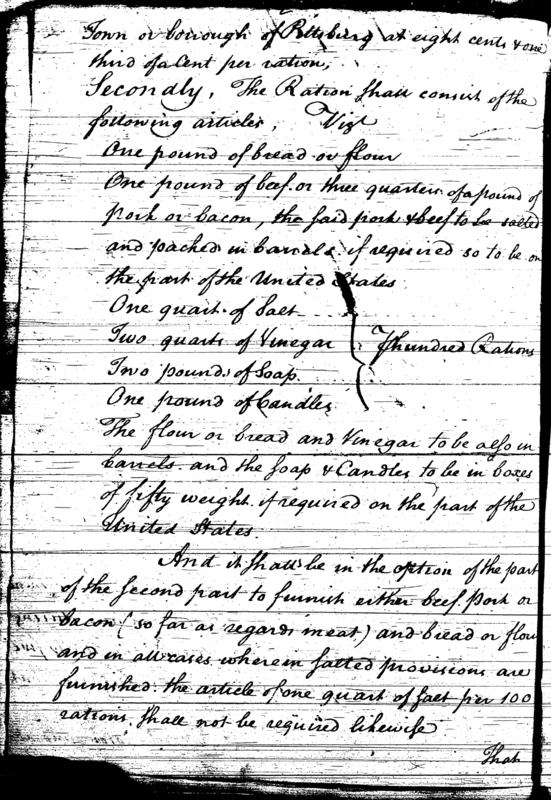 Town or borough of Pittsburg at eight cents & one
third of a Cent per ration,
Secondly, The Ration shall consist of the
following articles, Vizt
One pound of bread or flour
One pound of beef or three quarters of a pound of
pork or bacon, the said pork & beef to be salted
and packed in barrels if required so to be on
the part of the United States
One quart of Salt
Two quarts of Vinegar
Two pounds of Soap
One pound of Candles
hundred Rations
The flour or bread and Vinegar to be also in
barrels and the Soap & Candles to be in boxes
of fifty weight if required on the part of the
United States.
And it shall be in the option of the part
of the Second part to furnish either beef, Pork or
bacon (so far as regards meat) and bread or flou
and in all cases wherein salted provisions are
furnished the article of one quart of salt per 100
rations shall not be required likewise
That